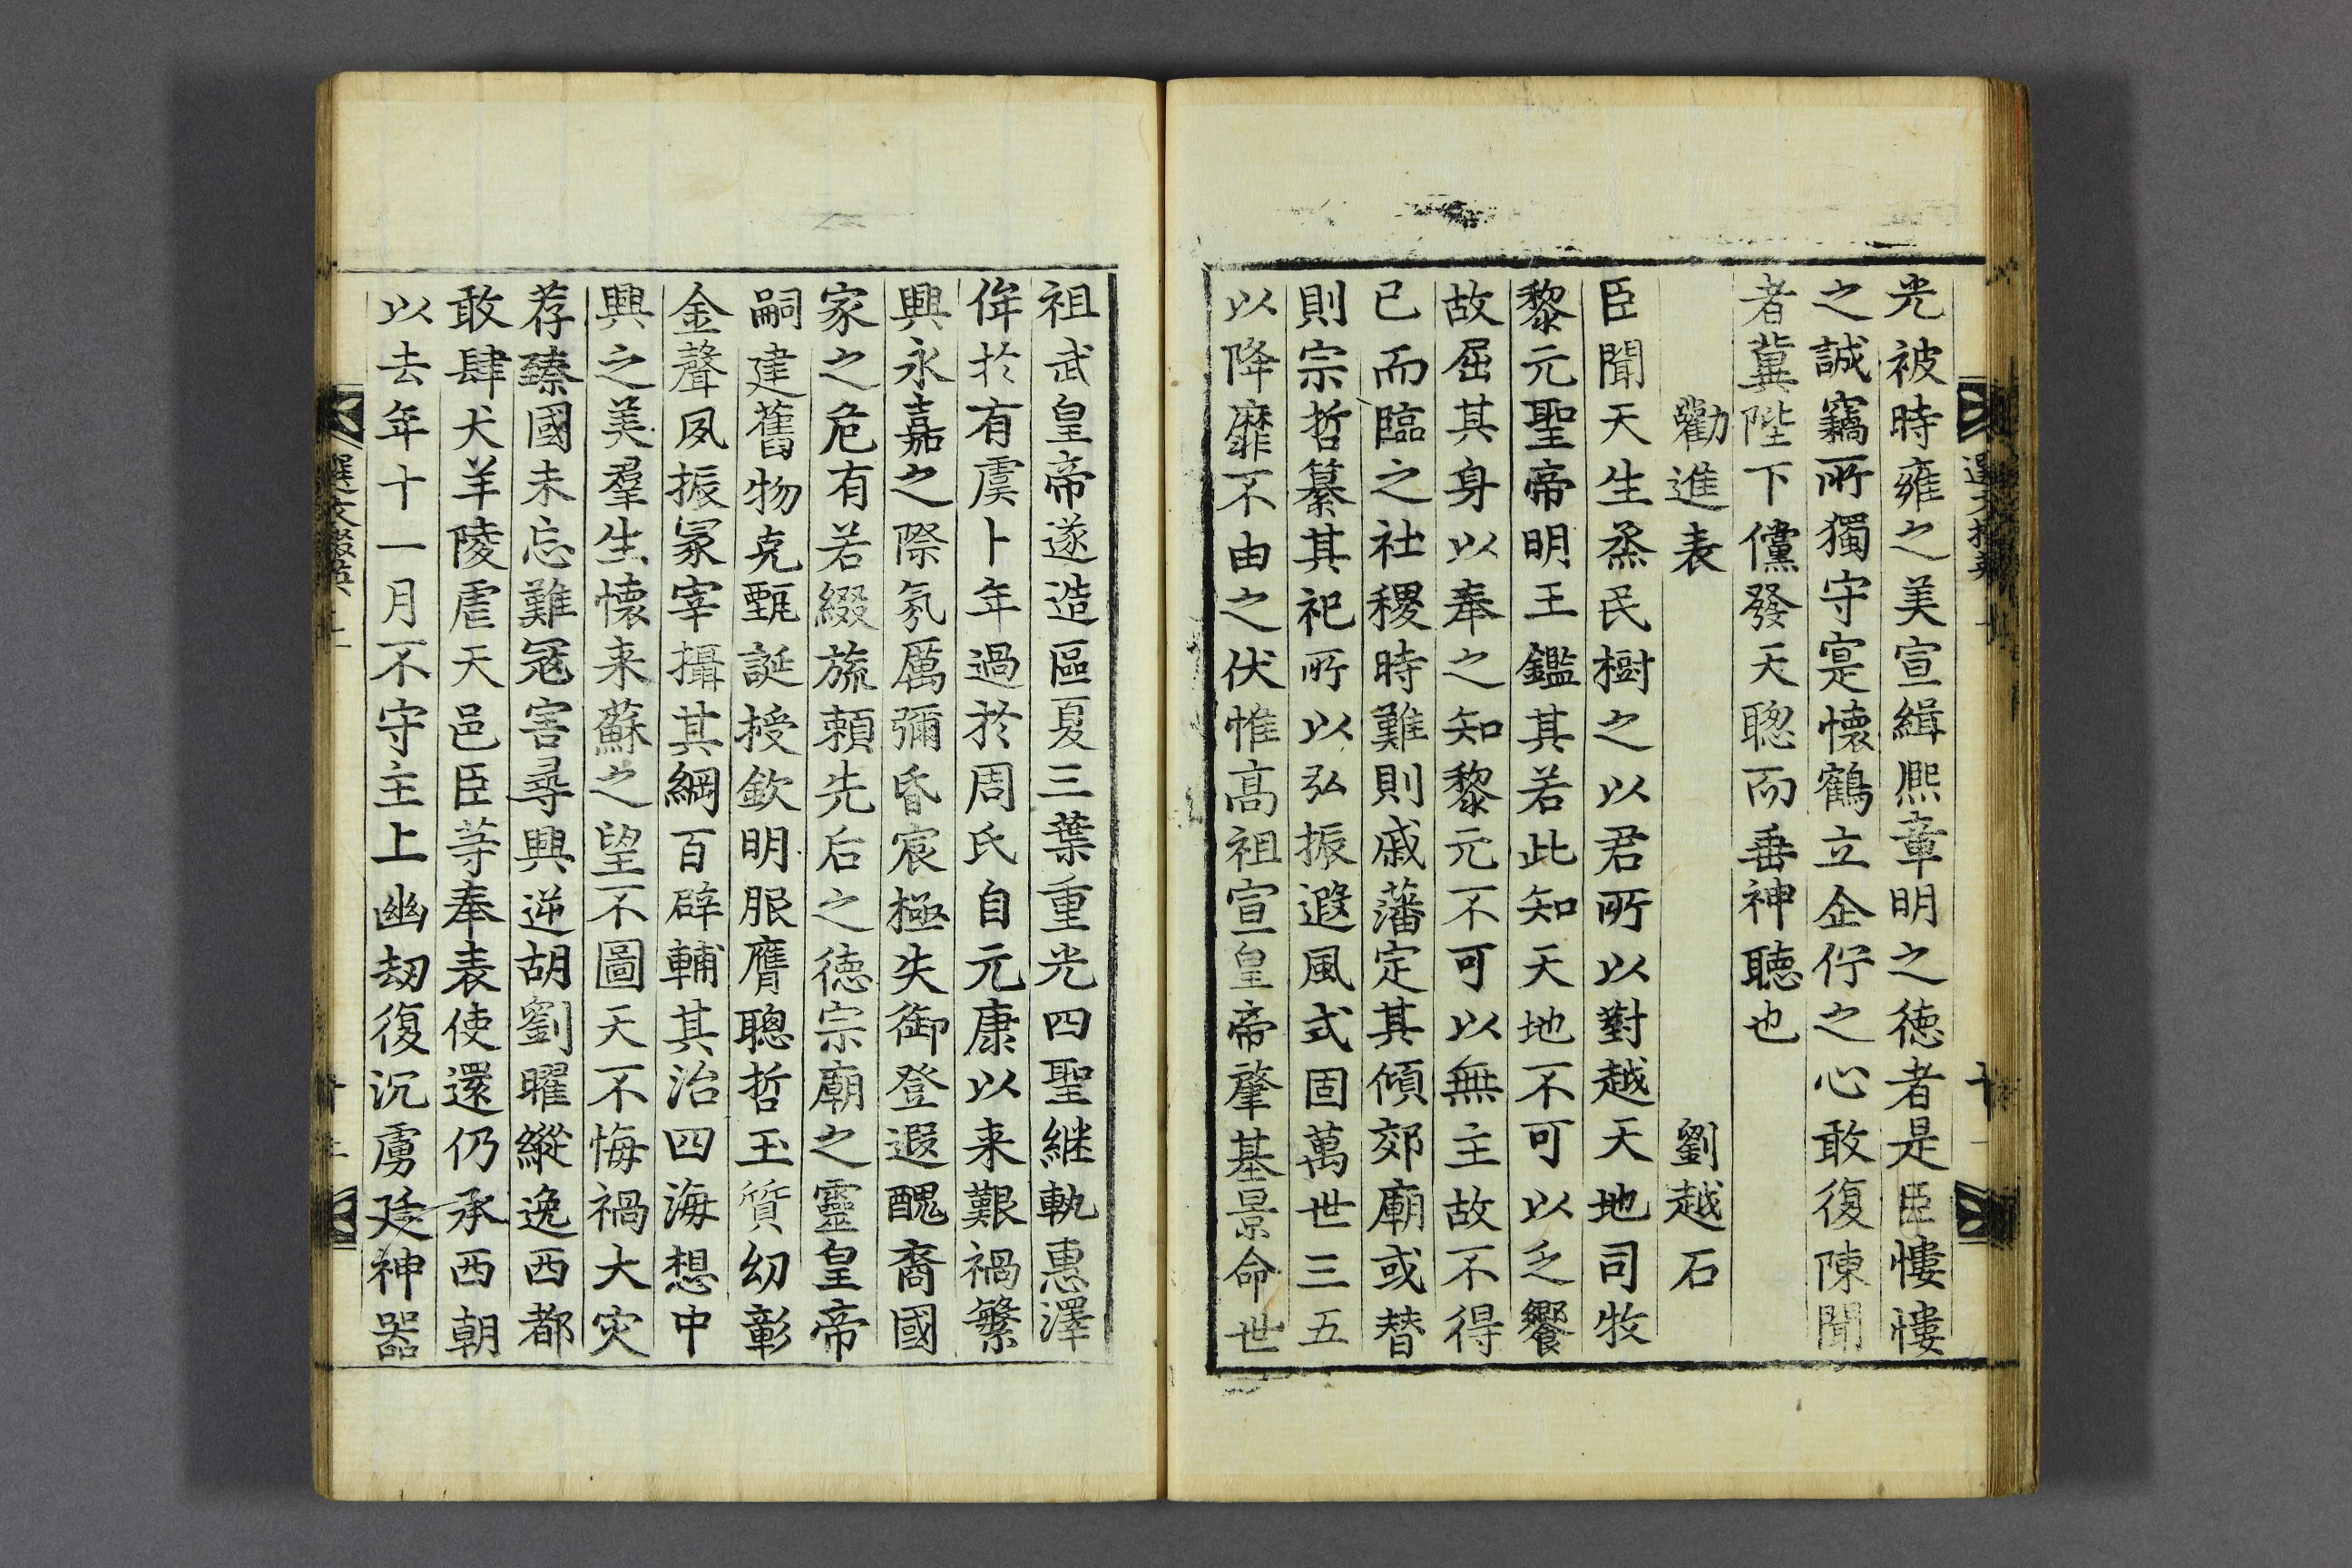 光被時雍之美宣緝熈章明之徳者是臣慺慺
之誠竊所獨守寔懷鶴立企佇之心敢復陳聞
者冀陛下儻發天聰而垂神聽也
勸進表 劉越石
臣聞天生烝民樹之以君所以對越天地司牧
黎元聖帝明王鑑其若此知天地不可以乏饗
故屈其身以奉之知黎元不可以無主故不得
已而臨之社稷時難則戚藩定其傾郊廟或替
則宗哲纂其祀所以弘振遐風式固萬世三五
以降靡不由之伏惟高祖宣皇帝肇基景命世
祖武皇帝遂造區夏三葉重光四聖継軌惠澤
侔於有虞卜年過於周氏自元康以来艱禍繁
興永嘉之際氛厲彌昏宸極失御登遐醜裔國
家之危有若綴旒頼先后之徳宗廟之靈皇帝
嗣建舊物克甄誕授欽明服膺聰哲玉質幼彰
金聲夙振冢宰攝其綱百辟輔其治四海想中
興之美羣生懷来蘇之望不圖天不悔禍大灾
荐臻國未忘難寇害尋興逆胡劉曜縱逸西都
敢肆犬羊陵虐天邑臣等奉表使還仍承西朝
以去年十一月不守主上幽劫復沉虜廷神器